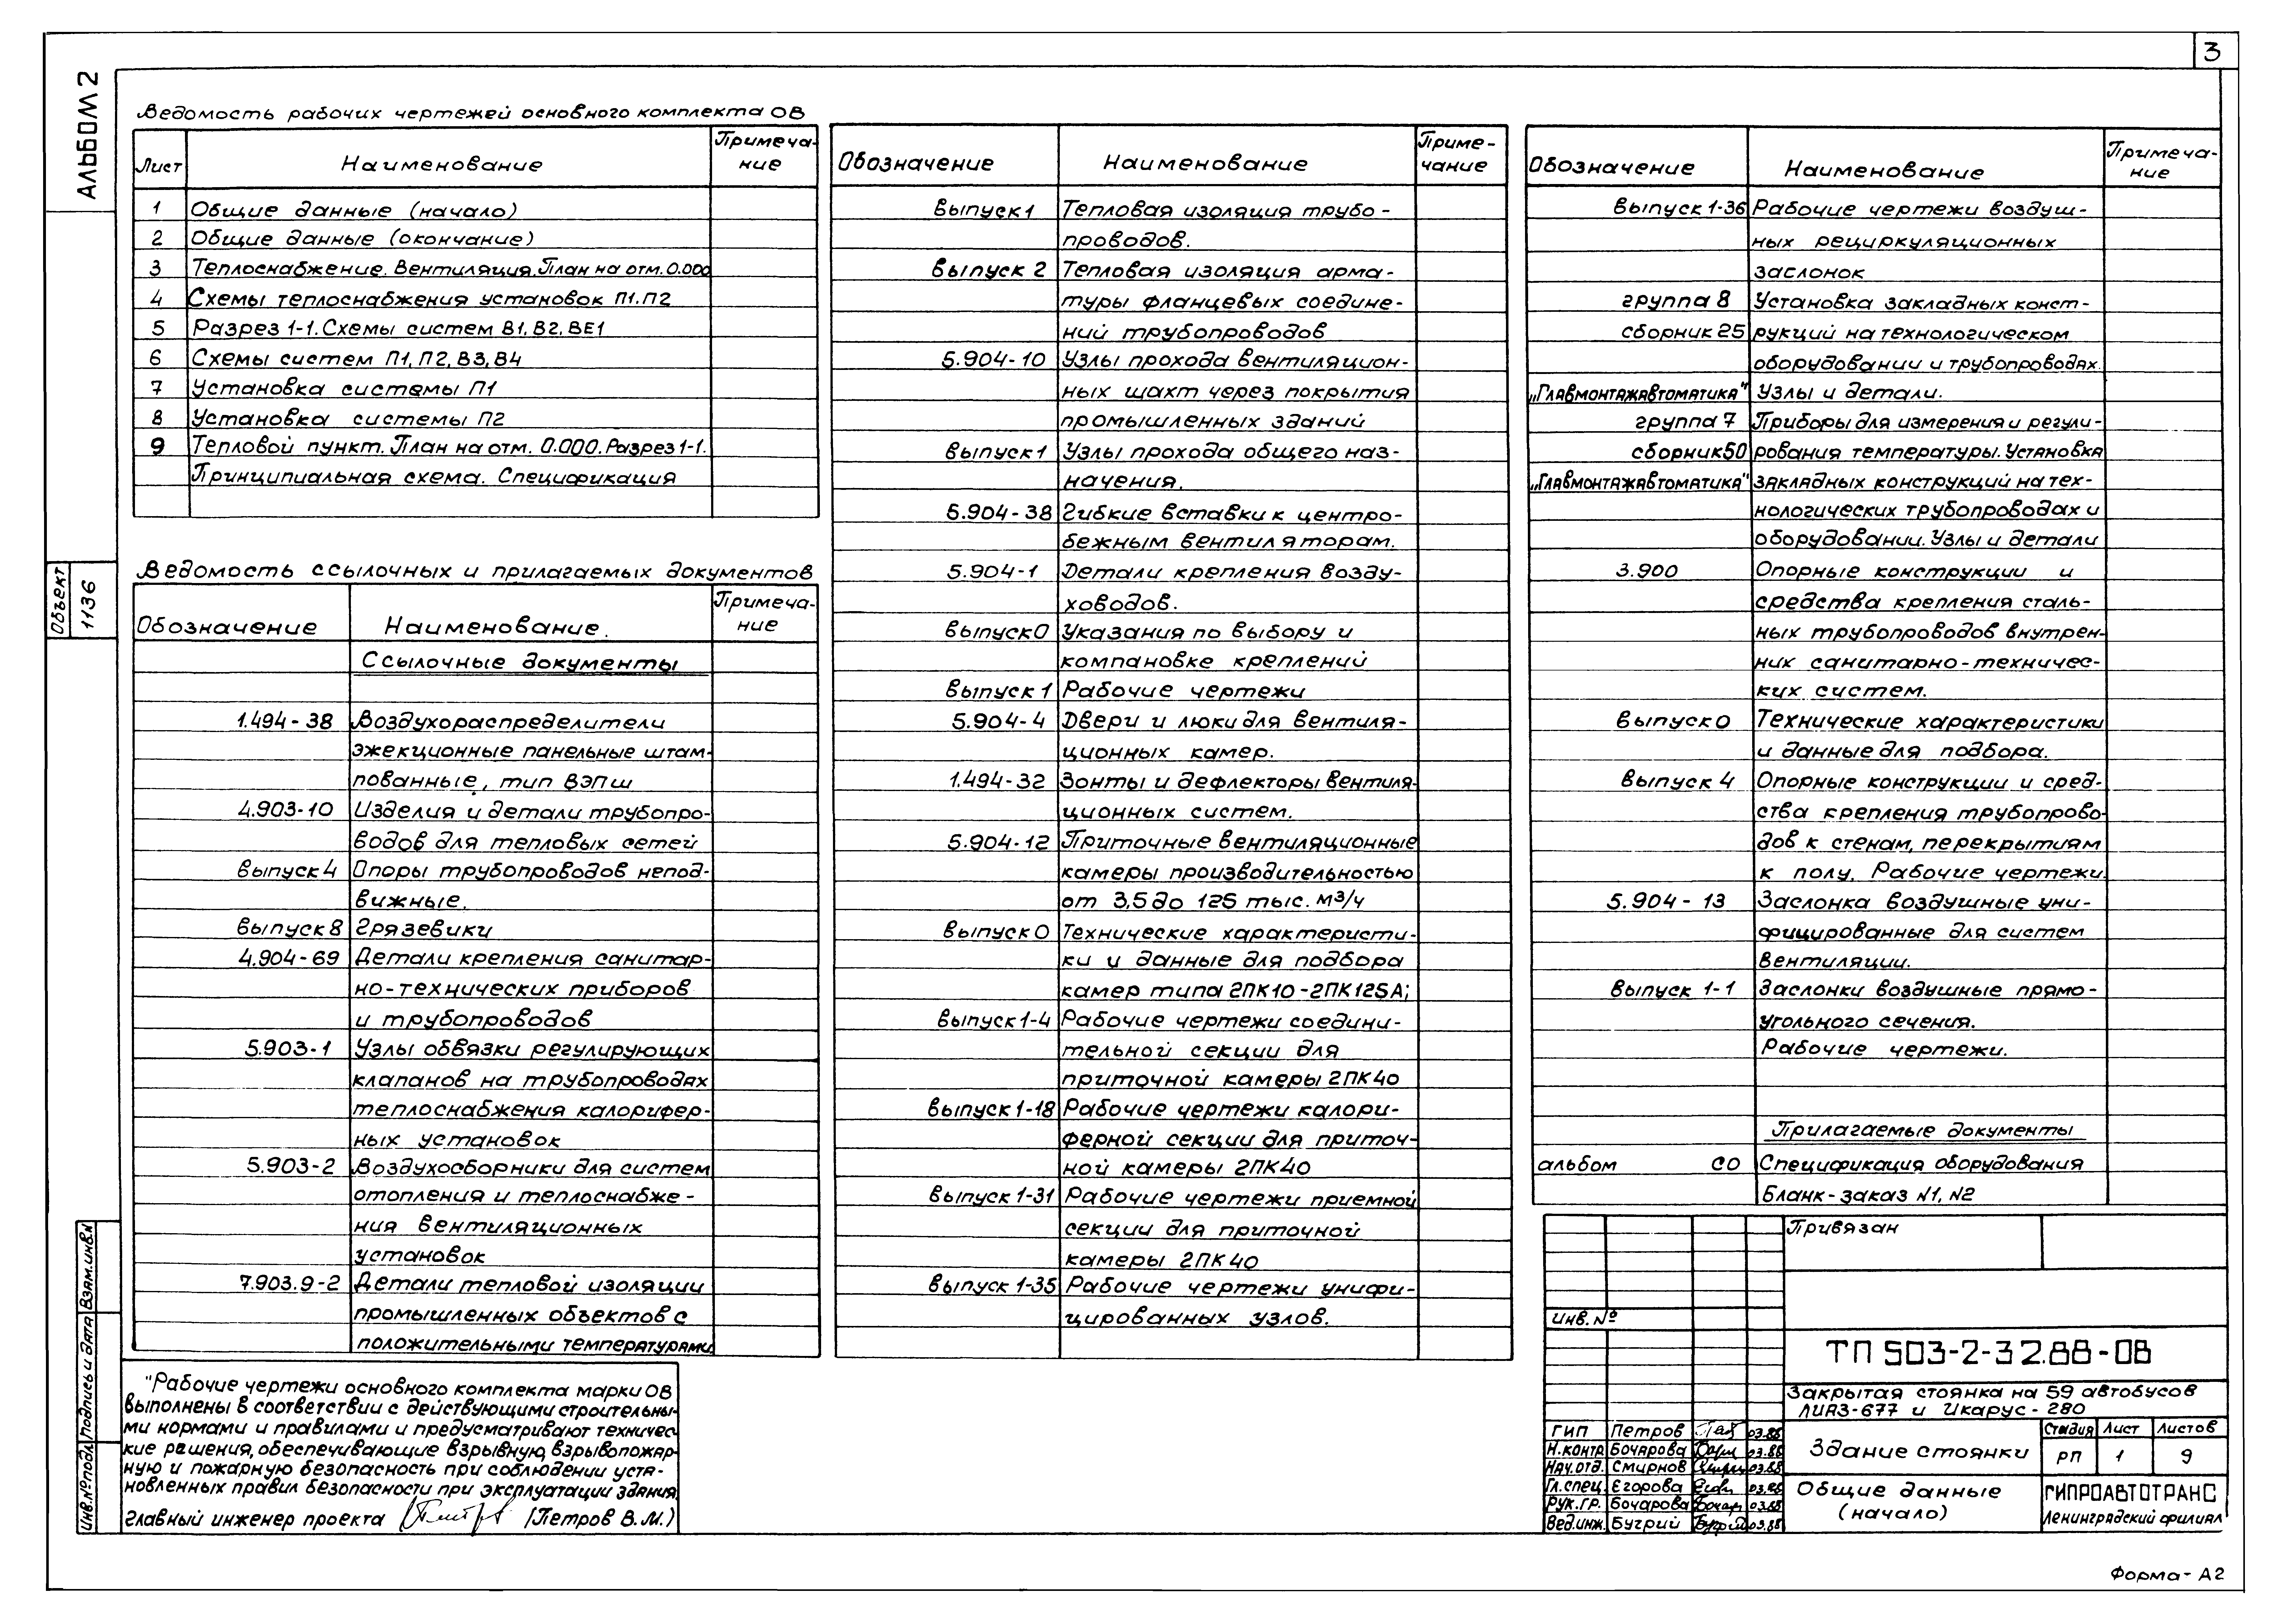 3
АЛЬБОМ 2
Ведомость рабочих чертежей основного комплекта ОВ
Лист Наименование Примеча-
ние
1 Общие данные (начало)
2 Общие данные (окончание)
3 Теплоснабжение. Вентиляция. План на отм. 0.000
4 Схемы теплоснабжения установок П1. П2
5 Разрез 1-1. Схемы систем В1, В2, ВЕ1
6 Схемы систем П1, П2, В3, В4
7 Установка системы П1
8 Установка системы П2
9 Тепловой пункт. План на отм. 0.000. Разрез 1-1.
Принципиальная схема. Спецификация
Объект
1136
Ведомость ссылочных и прилагаемых документов
Обозначение Наименование. Примеча-
ние
Ссылочные документы
1.494-38 Воздухораспределители
эжекционные панельные штам-
пованные, тип ВЭПш
4.903-10 Изделия и детали трубопро-
водов для тепловых сетей
выпуск 4 Опоры трубопроводов непод-
вижные.
выпуск 8 Грязевики
4.904-69 Детали крепления санитар-
но-технических приборов
и трубопроводов
5.903-1 Узлы обвязки регулирующих
клапанов на трубопроводах
теплоснабжения калорифер-
ных установок
5.903-2 Воздухосборники для систем
отопления и теплоснабже-
ния вентиляционных
установок
7.903.9-2 Детали тепловой изоляции
промышленных объектов с
положительными температурами
Обозначение Наименование Приме-
чание
выпуск 1 Тепловая изоляция трубо-
проводов.
выпуск 2 Тепловая изоляция арма-
туры фланцевых соедине-
ний трубопроводов
5.904-10 Узлы прохода вентиляцион-
ных шахт через покрытия
промышленных зданий
выпуск 1 Узлы прохода общего наз-
начения.
5.904-38 Гибкие вставки к центро-
бежным вентиляторам.
5.904-1 Детали крепления возду-
ховодов.
выпуск 0 Указания по выбору и
компановке креплений
выпуск 1 Рабочие чертежи
5.904-4 Двери и люки для вентиля-
ционных камер.
1.494-32 Зонты и дефлекторы вентиля-
ционных систем.
5.904-12 Приточные вентиляционные
камеры производительностью
от 3,5 до 125 тыс. м3/ч
выпуск 0 Технические характеристи-
ки и данные для подбора
камер типа 2ПК10-2ПК125А;
выпуск 1-4 Рабочие чертежи соедини-
тельной секции для
приточной камеры 2ПК40
выпуск 1-18 Рабочие чертежи калори-
ферной секции для приточ-
ной камеры 2ПК40
выпуск 1-31 Рабочие чертежи приемной
секции для приточной
камеры 2ПК40
выпуск 1-35 Рабочие чертежи унифи-
цированных узлов.
Обозначение Наименование Примеча-
ние
выпуск 1-36 Рабочие чертежи воздуш-
ных рециркуляционных
заслонок
группа 8 Установка закладных конст-
сборник 25 рукций на технологическом
оборудовании и трубопроводах.
„Главмонтажавтоматика" Узлы и детали.
группа 7 Приборы для измерения и регули-
сборник 50 рования температуры. Установка
„Главмонтажавтоматика" закладных конструкций на тех-
нологических трубопроводах и
оборудовании. Узлы и детали
3.900 Опорные конструкции и
средства крепления сталь-
ных трубопроводов внутрен-
них санитарно-техничес-
ких систем.
выпуск 0 Технические характеристики
и данные для подбора.
выпуск 4 Опорные конструкции и сред-
ства крепления трубопрово-
дов к стенам, перекрытиям
к полу. Рабочие чертежи.
5.904-13 Заслонка воздушные уни-
фицированные для систем
вентиляции.
выпуск 1-1 Заслонки воздушные прямо-
угольного сечения.
Рабочие чертежи.
Прилагаемые документы
альбом СО Спецификация оборудования
Бланк-заказ N1, N2
"Рабочие чертежи основного комплекта марки ОВ
выполнены в соответствии с действующими строительны-
ми нормами и правилами и предусматривают техничес-
кие решения, обеспечивающие взрывную, взрывопожар-
ную и пожарную безопасность при соблюдении уста-
новленных правил безопасности при эксплуатации здания.
Главный инженер проекта (Петров В.М.)
Взам.инв.N
Подпись и дата
Инв.№подл.
Привязан
Инв. №
ТП 503-2-32.88-ОВ
Закрытая стоянка на 59 автобусов
ЛИАЗ-677 и Икарус-280
ГИП Петров 03.88
Н.контр. Бочарова 03.88
Нач.отд. Смирнов 03.88
Гл.спец. Егорова 03.88
Рук.гр. Бочарова 03.88
Вед.инж. Бугрий 03.88
Здание стоянки
Стадия Лист Листов
РП 1 9
Общие данные
(начало)
ГИПРОАВТОТРАНС
Ленинградский филиал
Форма-А2